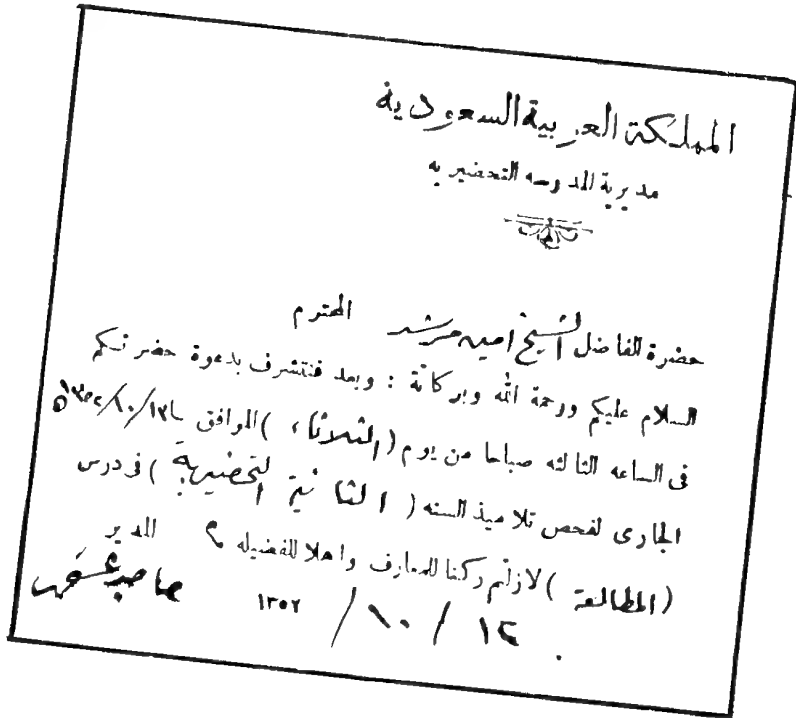 المملكة العربية السعودية
مديرية المدرسه التحضيريه
حضرة الفاضل الشيخ امين مرشد المحترم
السلام عليكم ورحمة الله وبركاتة : وبعد فنتشرف بدعوة حضرتكم
فى الساعه الثالثه صباحا من يوم ( الثلاثاء ) الموافق
الجارى لفحص تلاميذ السنه ( الثانية التحضيرية ) فى درس
( المطالعة ) لازلتم ركنا للمعارف واهلا للفضيله م المدير
١٣٥٢ / ١٠ / ١٢